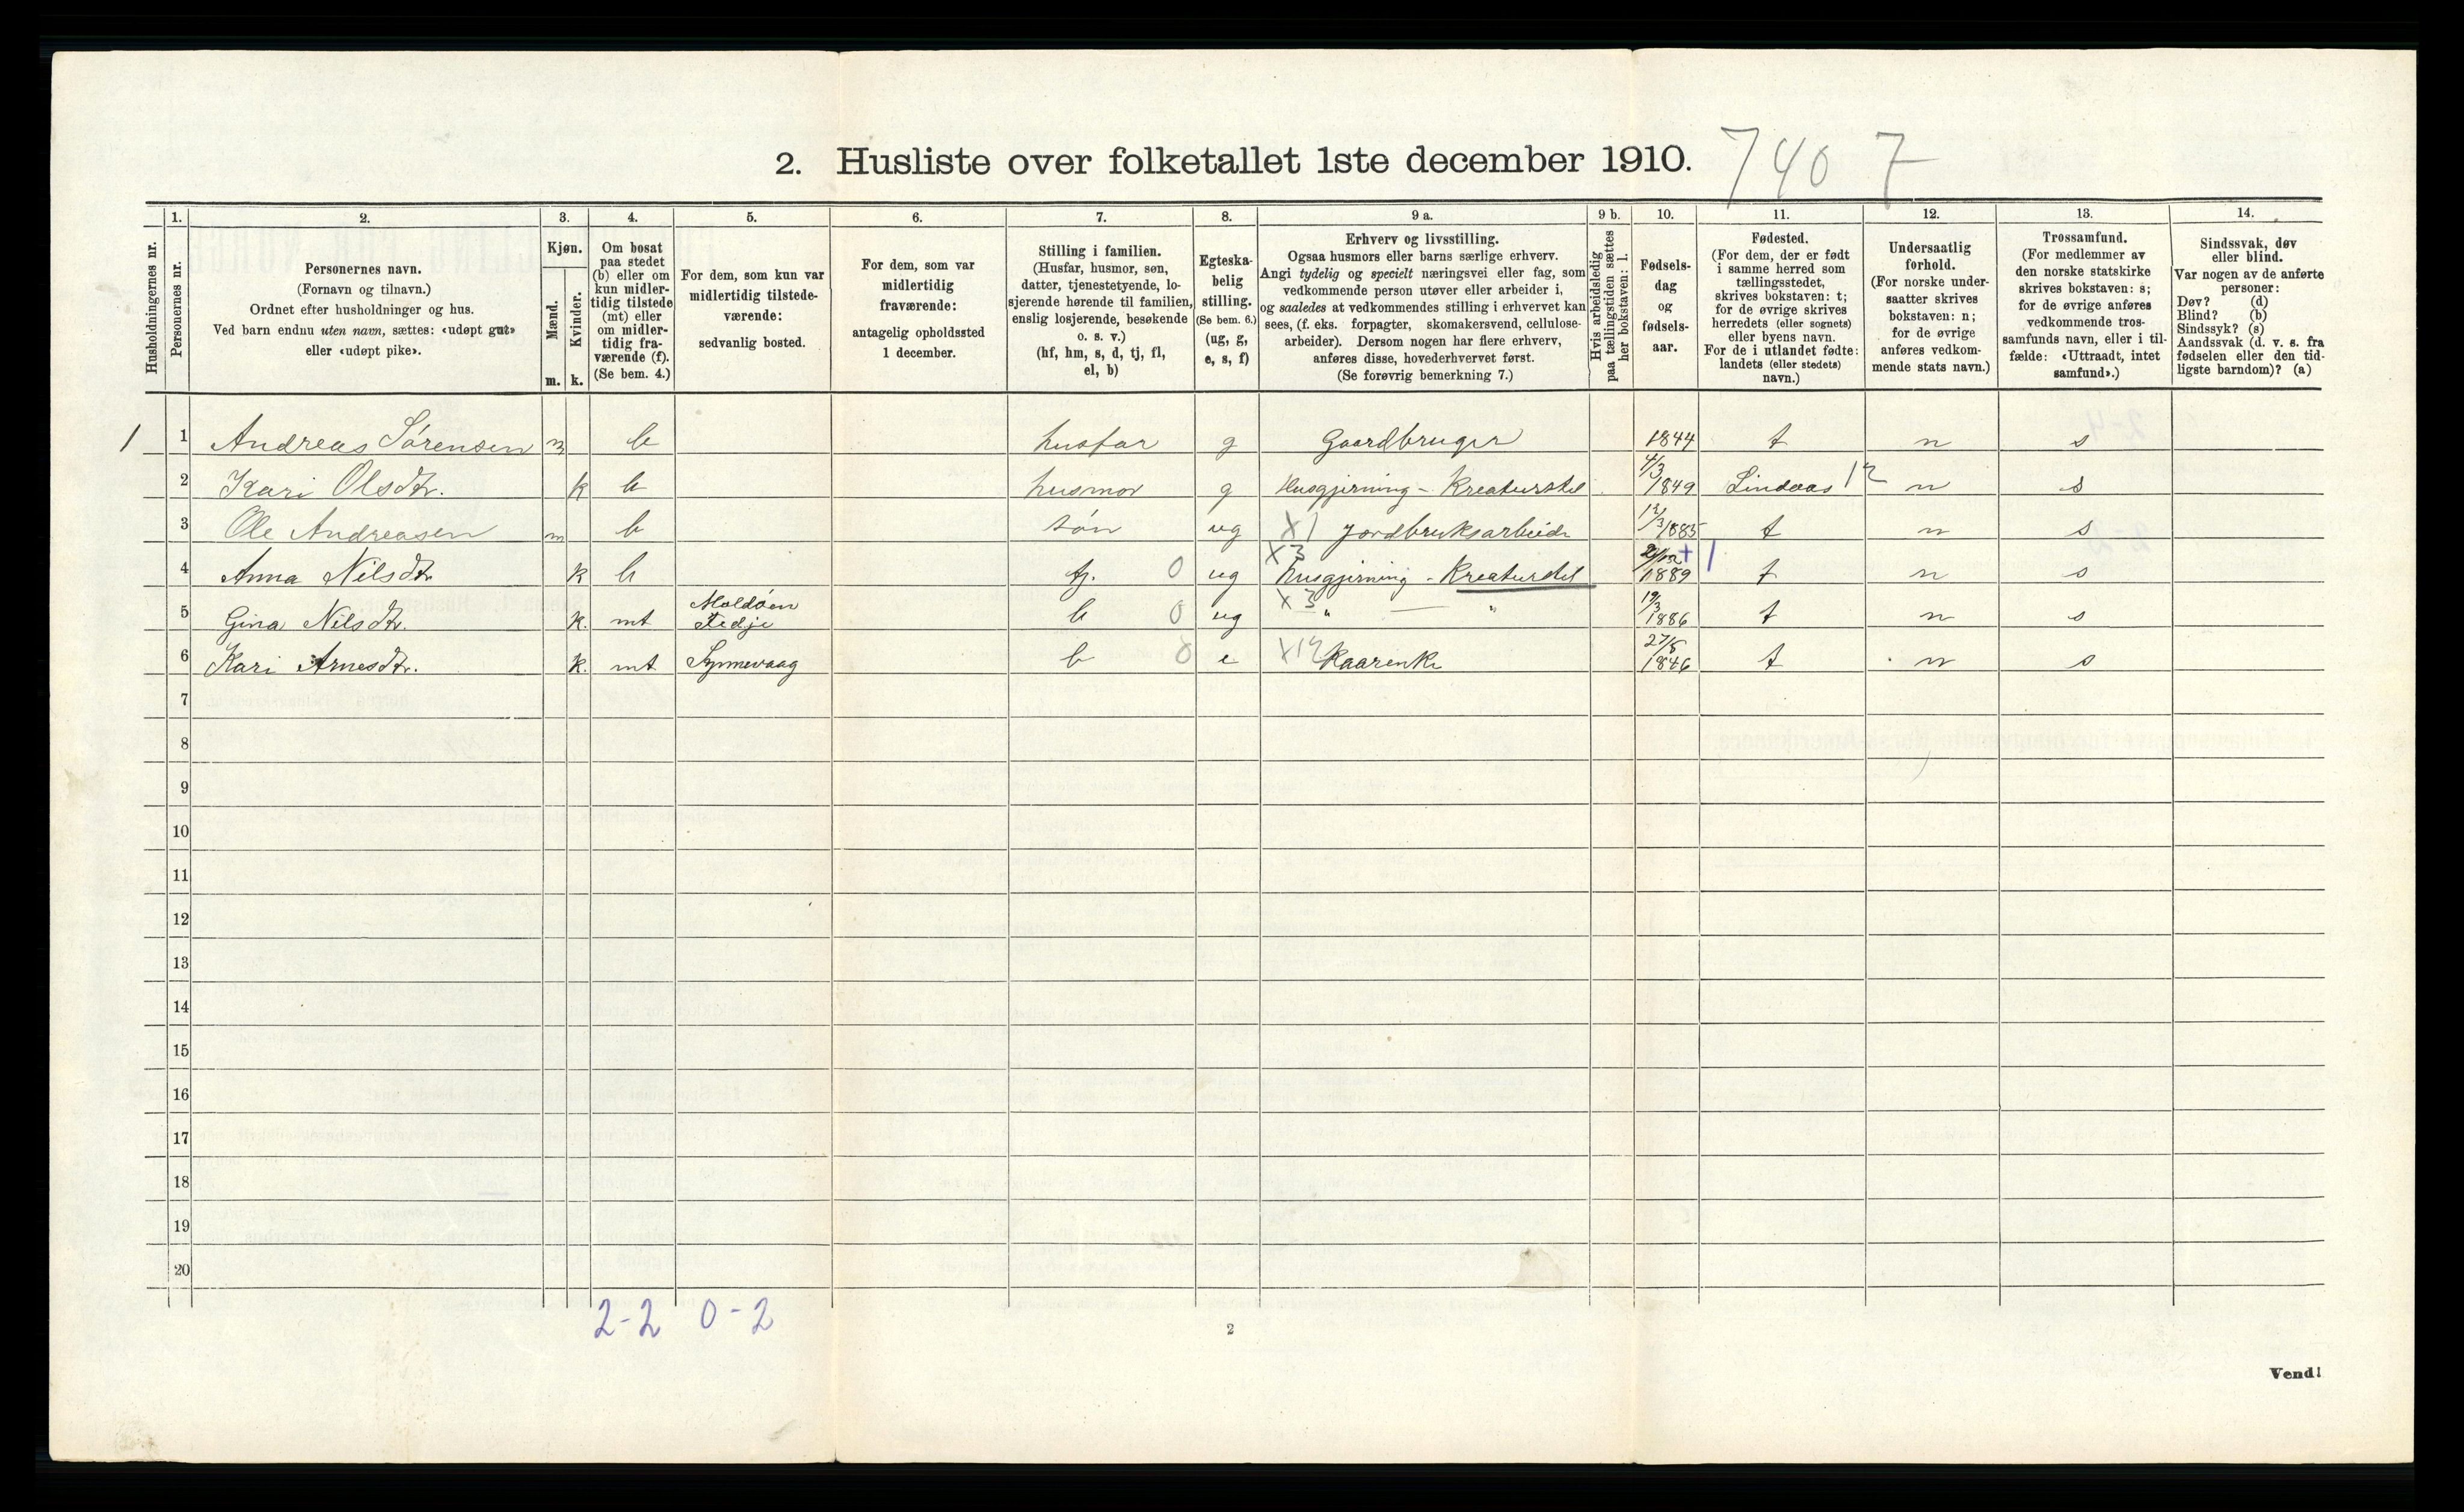 2. Husliste over folketallet 1ste december 1910. 740 7
Husholdningernes nr.
1. Personernes nr.
2. Personernes navn. (Fornavn og tilnavn.) Ordnet efter husholdninger og hus. Ved barn endnu uten navn, sættes: «udøpt gut» eller «udøpt pike».
3. Kjøn. Mænd. m. Kvinder. k.
4. Om bosat paa stedet (b) eller om kun midlertidig tilstede (mt) eller om midlertidig fraværende (f). (Se bem. 4.)
5. For dem, som kun var midlertidig tilstedeværende: sedvanlig bosted.
6. For dem, som var midlertidig fraværende: antagelig opholdssted 1 december.
7. Stilling i familien. (Husfar, husmor, søn, datter, tjenestetyende, losjerende hørende til familien, enslig losjerende, besøkende o. s. v.) (hf, hm, s, d, tj, fl, el, b)
8. Egteskabelig stilling. (Se bem. 6.) (ug, g, e, s, f)
9 a. Erhverv og livsstilling. Ogsaa husmors eller barns særlige erhverv. Angi tydelig og specielt næringsvei eller fag, som vedkommende person utøver eller arbeider i, og saaledes at vedkommendes stilling i erhvervet kan sees, (f. eks. forpagter, skomakersvend, cellulosearbeider). Dersom nogen har flere erhverv, anføres disse, hovederhvervet først. (Se forøvrig bemerkning 7.)
9 b. Hvis arbeidsledig paa tællingstiden sættes her bokstaven: l.
10. Fødselsdag og fødselsaar.
11. Fødested. (For dem, der er født i samme herred som tællingsstedet, skrives bokstaven: t; for de øvrige skrives herredets (eller sognets) eller byens navn. For de i utlandet fødte: landets (eller stedets) navn.)
12. Undersaatlig forhold. (For norske undersaatter skrives bokstaven: n; for de øvrige anføres vedkommende stats navn.)
13. Trossamfund. (For medlemmer av den norske statskirke skrives bokstaven: s; for de øvrige anføres vedkommende trossamfunds navn, eller i tilfælde: «Uttraadt, intet samfund».)
14. Sindssvak, døv eller blind. Var nogen av de anførte personer: Døv? (d) Blind? (b) Sindssyk? (s) Aandssvak (d. v. s. fra fødselen eller den tidligste barndom)? (a)
1 1 Andreas Sørensen m b husfar g Gaardbruger 1844 t n s
2 Kari Olsdtr. k b husmor g Husgjerning - Kreaturstel 4/3 1849 Lindaas 12 n s
3 Ole Andreasen m b søn ug X1 Jordbruksarbeide 12/3 1885 t n s
4 Anna Nilsdtr k b tj. 0 ug X3 husgjerning - Kreaturstel 1889 + 1 t n s
5 Gina Nilsdtr. k. mt Moldøen Fedje b 0 ug X3 " — " 19/3 1886 t n s
6 Kari Arnesdtr. k. mt Synnevaag b 0 e Kaarenke 27/8 1846 t n s
7
8
9
10
11
12
13
14
15
16
17
18
19
20
2-2 0-2
2
Vend!